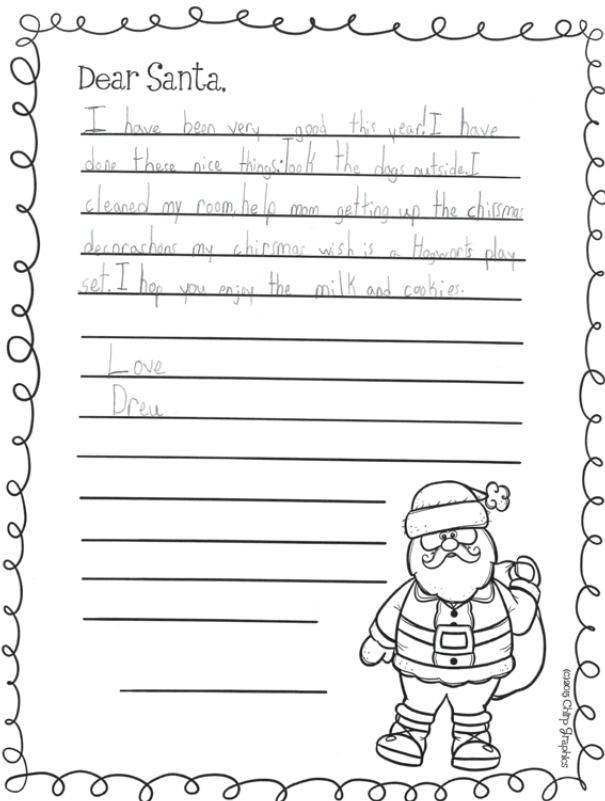 Dear Santa,
I have been very good this year! I have
done these nice things: Took the dogs outside. I
cleaned my room. help mom getting up the chirsmas
decorashons my chirsmas wish is a Hogwarts play
set. I hop you enjoy the milk and cookies.
Love
Drew
(c)2015 Chirp Graphics